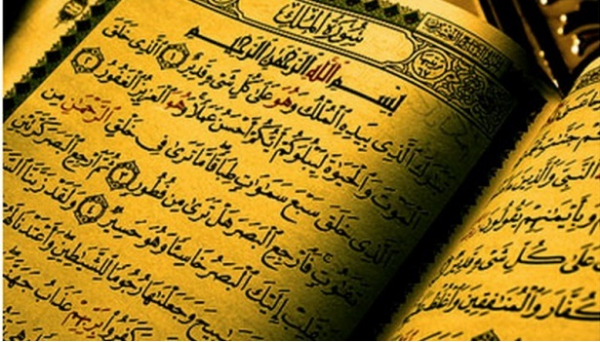 سُورَةُ المُلْكِ
بِسْمِ ٱللَّهِ ٱلرَّحْمَٰنِ ٱلرَّحِيمِ
تَبَٰرَكَ ٱلَّذِى بِيَدِهِ ٱلْمُلْكُ وَهُوَ عَلَىٰ كُلِّ شَىْءٍ قَدِيرٌ ١ ٱلَّذِى خَلَقَ
ٱلْمَوْتَ وَٱلْحَيَوٰةَ لِيَبْلُوَكُمْ أَيُّكُمْ أَحْسَنُ عَمَلًا وَهُوَ ٱلْعَزِيزُ ٱلْغَفُورُ ٢
ٱلَّذِى خَلَقَ سَبْعَ سَمَٰوَٰتٍ طِبَاقًا مَّا تَرَىٰ فِى خَلْقِ ٱلرَّحْمَٰنِ مِن
تَفَٰوُتٍ فَٱرْجِعِ ٱلْبَصَرَ هَلْ تَرَىٰ مِن فُطُورٍ ٣ ثُمَّ ٱرْجِعِ ٱلْبَصَرَ كَرَّتَيْنِ
يَنقَلِبْ إِلَيْكَ ٱلْبَصَرُ خَاسِئًا وَهُوَ حَسِيرٌ ٤ وَلَقَدْ زَيَّنَّا
وَجَعَلْنَٰهَا رُجُومًا لِّلشَّيَٰطِينِ وَأَعْتَدْنَا لَهُمْ
كَفَرُوا۟ بِرَبِّهِمْ عَذَابُ جَهَنَّمَ
ٱلنَّبِىَّ وَٱلَّذِينَ
يَقُولُونَ
عَلَىٰ كُلِّ شَىْءٍ قَدِيرٌ
وَٱلْمُنَٰفِقِينَ وَٱغْلُظْ